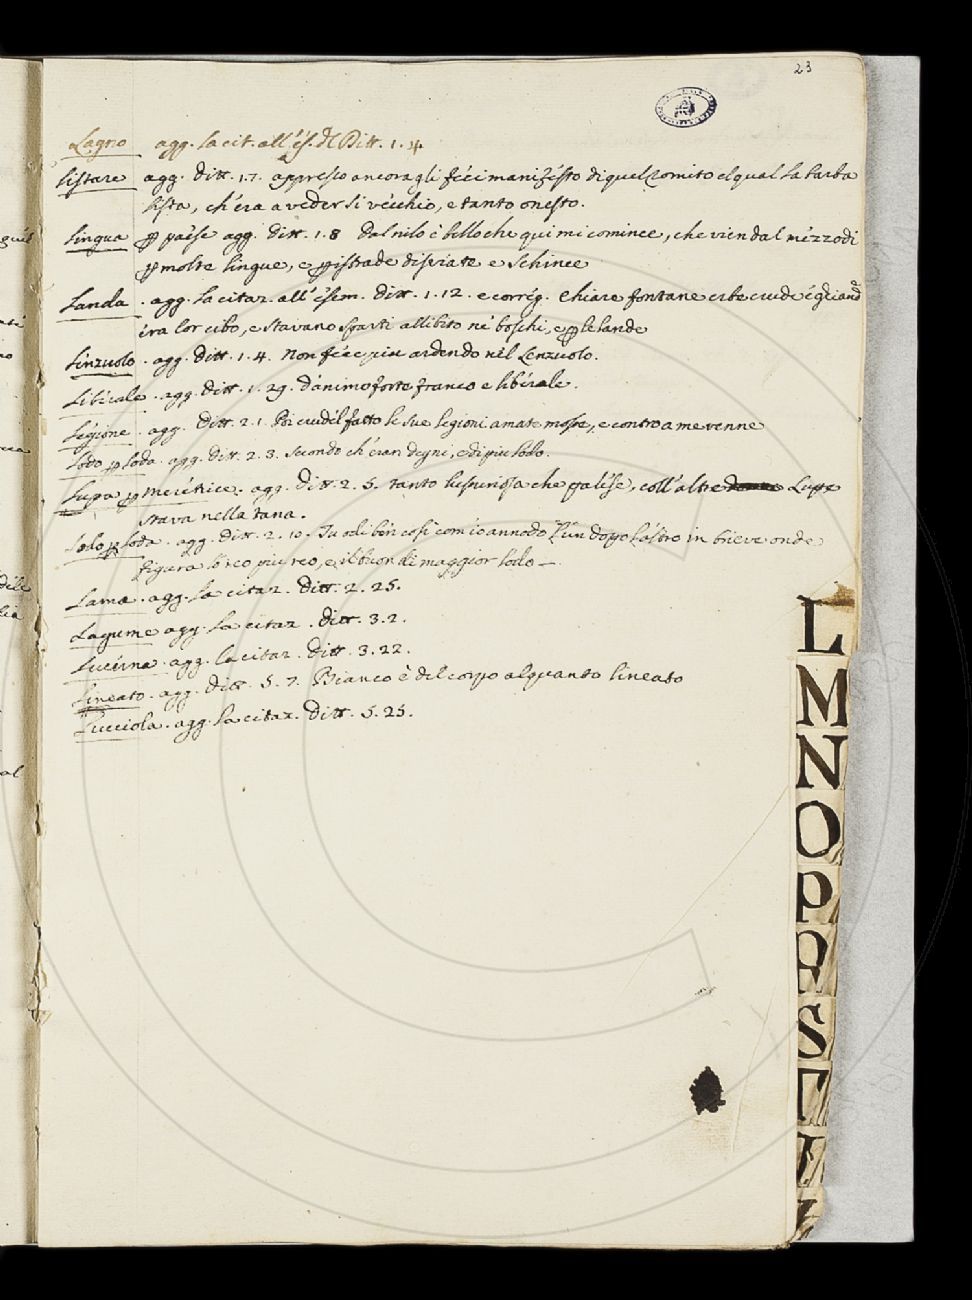 23
Lagno agg. la cit. all'es. di Ditt. 1. 4
Listare agg. Ditt. 1.7. appresso ancora gli feci manifesto di quel Romito el qual la barba
lista, ch'era a veder sì vecchio, e tanto onesto.
Lingua p paese agg. Ditt. 1. 8 dal nilo è bello che qui mi comince, che vien dal mezzodì
p molte lingue, e p istrade disviate e schince
Landa. agg. la citaz. all'esem. Ditt. 1. 12. e correg. Chiare fontane erbe crude e ghiande
era lor cibo, e stavano sparti allibito ne' boschi, e p le lande
Linzuolo. agg. Ditt. 1. 4. Non fece piu ardendo nel Lenzuolo.
Liberale. agg. Ditt. 1. 29. d'animo forte franco e liberale.
Legione. agg. Ditt. 2. 1. Poi crudel fatto le sue legioni amate mosse, e contro a me venne
Lodo p loda. agg. Ditt. 2. 3. secondo ch'eran degni, e di piu lodo.
Lupa p meretrice. agg. Ditt. 2. 5. tanto lussuriosa che palese, coll'altre Luppe
stava nella tana.
Lodo p loda. agg. Ditt. 2. 10. Tu odi ben così com'io annodo l'un dopo l'altro in brieve onde
figura lo reo piu reo, e il buon di maggior lodo —.
Lama. agg. la citaz. Ditt. 2. 25.
Lagume agg. la citaz. Ditt. 3. 2.
Lucerna. agg. la citaz. Ditt. 3. 22.
Lineato. agg. Ditt. 5. 7. Bianco è del corpo alquanto lineato
Lucciola. agg. la citaz. Ditt. 5. 25.
L
M
N
O
P
S
T